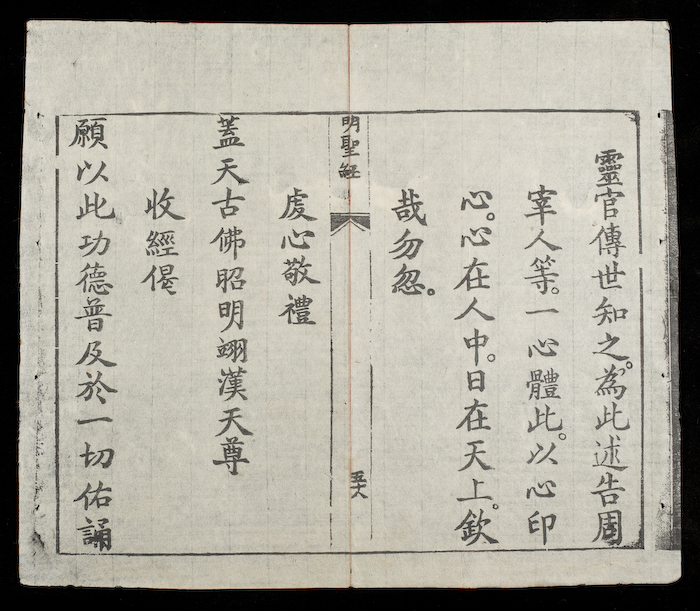 靈官傳世知之。為此述告周
宰人等。一心體此。以心印
心。心在人中。日在天上。欽
哉勿忽。
明聖經
五十六
虔心敬禮
蓋天古佛昭明翊漢天尊
收經偈
願以此功德普及於一切佑誦